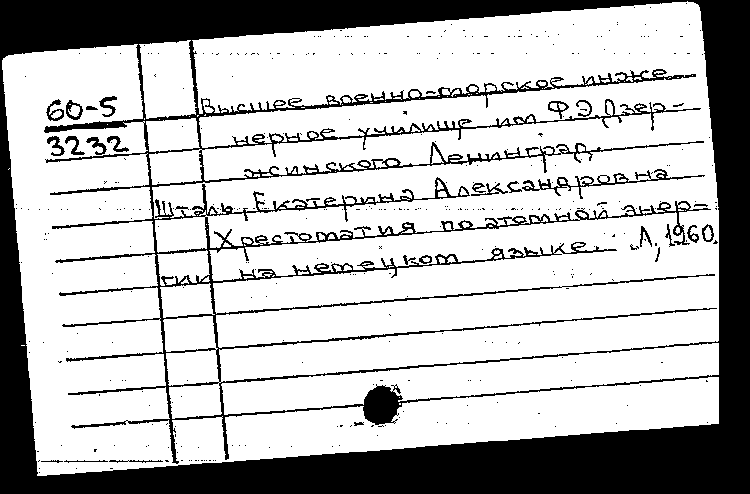 60-5
3232
Высшее военно-морское инже
нерное училище им Ф.Э.Дзер-
жинского. Ленинград.
Шталь, Екатерина Александровна
Хрестоматия по атомной энер-
гии на немецком языке. Л, 1960.